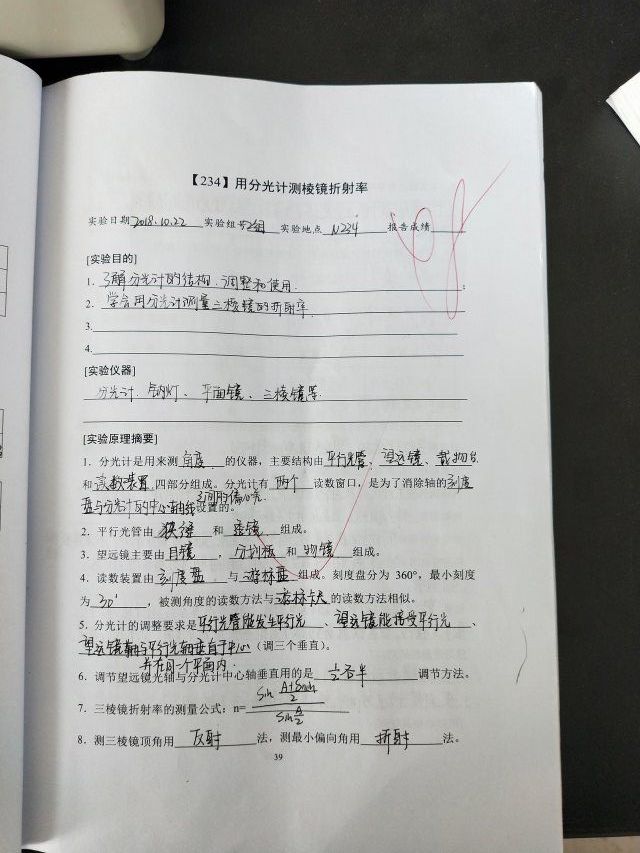 【234】用分光计测棱镜折射率
实验日期2018.10.22 实验组号2组 实验地点 N234 报告成绩
98
[实验目的]
1. 了解分光计的结构、调整和使用 ;
2. 学会用分光计测量三棱镜的折射率
3.
4.
[实验仪器]
分光计、钠灯、平面镜、三棱镜等.
[实验原理摘要]
1. 分光计是用来测 角度 的仪器，主要结构由 平行光管、望远镜、载物台
和 读数装置 四部分组成。分光计有 两个 读数窗口，是为了消除轴的刻度
盘与分光计的中心轴线之间的偏心差设置的。
2. 平行光管由 狭缝 和 透镜 组成。
3. 望远镜主要由 目镜 ，分划板 和 物镜 组成。
4. 读数装置由 刻度盘 与 游标盘 组成。刻度盘分为 360°，最小刻度
为 30' ，被测角度的读数方法与 游标卡尺 的读数方法相似。
5. 分光计的调整要求是平行光管能发生平行光 、望远镜能接受平行光 、
望远镜与平行光轴垂直于中心（调三个垂直）。
并在同一个平面内.
6. 调节望远镜光轴与分光计中心轴垂直用的是 各半 调节方法。
7. 三棱镜折射率的测量公式：n= sin A+δmin/2 / sin A/2
8. 测三棱镜顶角用 反射 法，测最小偏向角用 折射 法。
39